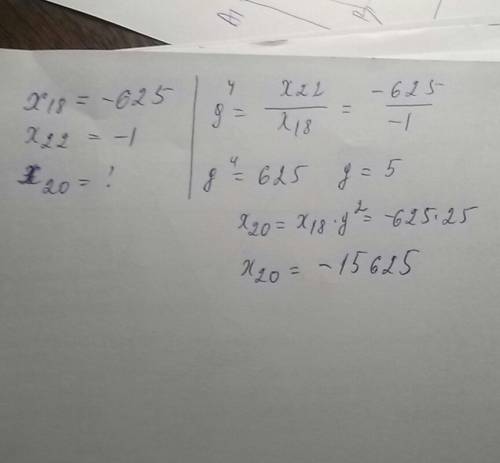 x₁₈ = -625
x₂₂ = -1
x₂₀ = ?
g⁴ = x₂₂ / x₁₈ = -625 / -1
g⁴ = 625 g = 5
x₂₀ = x₁₈ · g² = -625 · 25
x₂₀ = -15625